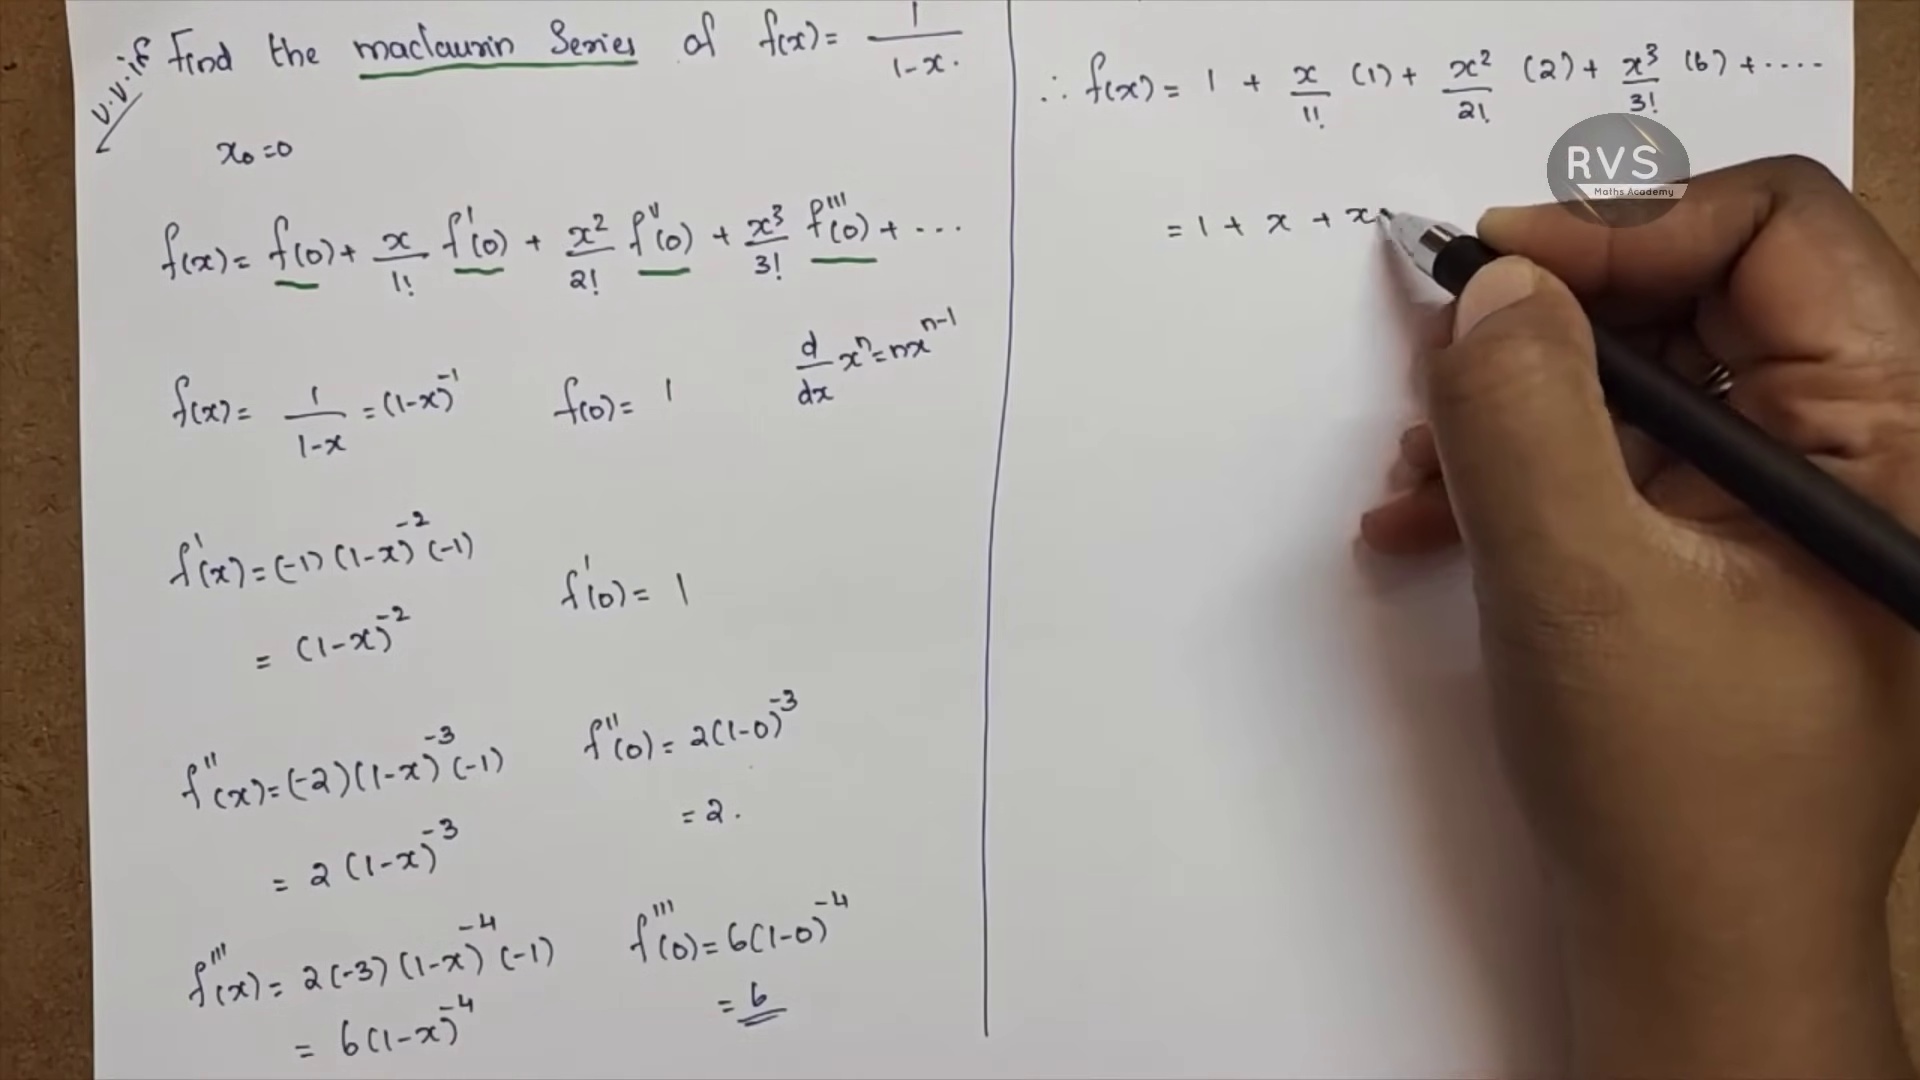 v.v.if Find the maclaurin Series of f(x) = 1/(1-x).
x₀=0
f(x) = f(0) + x/1! f'(0) + x²/2! f''(0) + x³/3! f'''(0) + ...
f(x) = 1/(1-x) = (1-x)⁻¹ f(0) = 1 d/dx xⁿ = nxⁿ⁻¹
f'(x) = (-1)(1-x)⁻²(-1) f'(0) = 1
= (1-x)⁻²
f''(x) = (-2)(1-x)⁻³(-1) f''(0) = 2(1-0)⁻³
= 2(1-x)⁻³ = 2.
f'''(x) = 2(-3)(1-x)⁻⁴(-1) f'''(0) = 6(1-0)⁻⁴
= 6(1-x)⁻⁴ = 6
∴ f(x) = 1 + x/1! (1) + x²/2! (2) + x³/3! (6) + ....
= 1 + x + x
RVS
Maths Academy